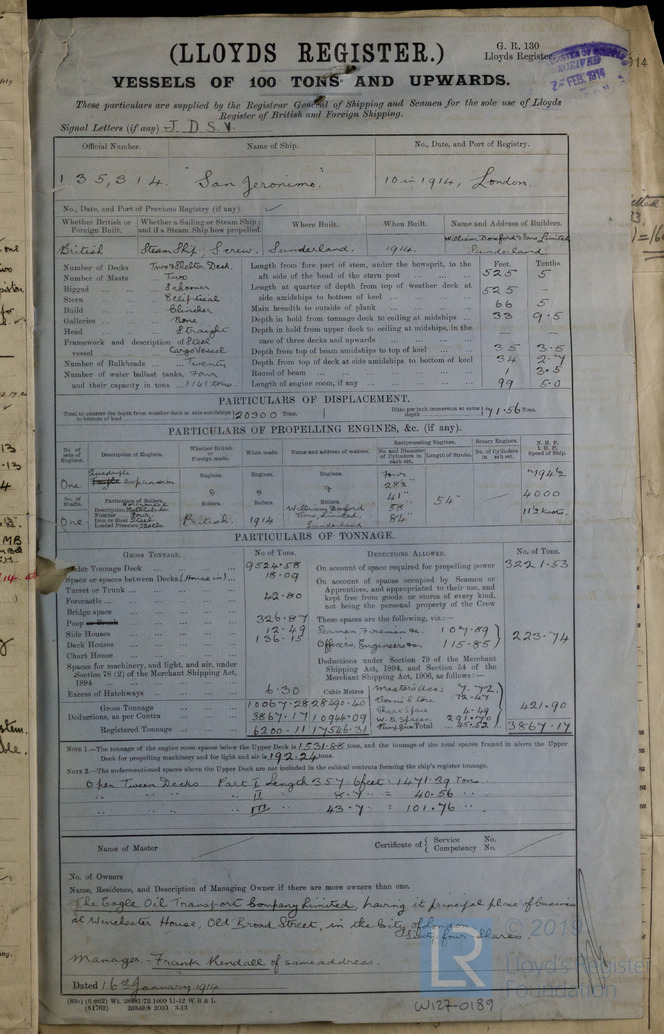 G. R. 130
(LLOYDS REGISTER.)
Lloyds Register
25 FEB. 1914
VESSELS OF 100 TONS AND UPWARDS.
These particulars are supplied by the Registrar General of Shipping and Seamen for the sole use of Lloyds
Register of British and Foreign Shipping.
Signal Letters (if any) J. D. S. V.
Official Number. Name of Ship. No., Date, and Port of Registry.
135,314. "San Jeronimo." 10 in 1914, London.
No., Date, and Port of Previous Registry (if any).
Whether British or Foreign Built. Whether a Sailing or Steam Ship; and if a Steam Ship how propelled. Where Built. When Built. Name and Address of Builders.
British Steam Ship; Screw. Sunderland. 1914. William Doxford & Sons Limited Sunderland
Feet. Tenths
Number of Decks Two & Shelter Deck. Length from fore part of stem, under the bowsprit, to the aft side of the head of the stern post 525 5
Number of Masts Two
Rigged Schooner Length at quarter of depth from top of weather deck at side amidships to bottom of keel 525 -
Stern Elliptical
Build Clincher Main breadth to outside of plank 66 5
Galleries None Depth in hold from tonnage deck to ceiling at midships 33 9.5
Head Straight Depth in hold from upper deck to ceiling at midships, in the case of three decks and upwards
Framework and description of vessel Steel Cargo Vessel Depth from top of beam amidships to top of keel 35 3.5
Number of Bulkheads Twenty Depth from top of deck at side amidships to bottom of keel 34 2.7
Number of water ballast tanks, Four Round of beam 1 3.5
and their capacity in tons 1141 tons. Length of engine room, if any 99 5.0
PARTICULARS OF DISPLACEMENT.
Total to quarter the depth from weather deck at side amidships to bottom of keel 20300 Tons. Ditto per inch immersion at same depth 71.56 Tons.
PARTICULARS OF PROPELLING ENGINES, &c. (if any).
No. of sets of Engines. Description of Engines. Whether British or Foreign made. When made. Name and address of makers. Reciprocating Engines. Rotary Engines. N. H. P. I. H. P. Speed of Ship.
No. and Diameter of Cylinders in each set. Length of Stroke. No. of Cylinders in each set.
One Quadruple expansion Engines. Engines. Engines. Four
No. of Shafts. Particulars of Boilers. Boilers. Boilers. Boilers. 41" 54" 4000
Description
Number Four
Iron or Steel Steel
Loaded Pressure 220 lbs
One British. 1914 William Doxford & Sons, Limited, Sunderland 58 84"
PARTICULARS OF TONNAGE.
GROSS TONNAGE. No. of Tons. DEDUCTIONS ALLOWED. No. of Tons.
Under Tonnage Deck 9524.58 On account of space required for propelling power 3221.53
Space or spaces between Decks (House in) 18.09 On account of spaces occupied by Seamen or Apprentices, and appropriated to their use, and kept free from goods or stores of every kind, not being the personal property of the Crew
Turret or Trunk
Forecastle 42.80
Bridge space
Poop 326.87 These spaces are the following, viz.:—
Side Houses 12.49 Seamen Firemen &c. 107.89
Deck Houses 136.15 Officers, Engineers &c. 115.85 223.74
Chart House
Spaces for machinery, and light, and air, under Section 78 (2) of the Merchant Shipping Act, 1894 Deductions under Section 79 of the Merchant Shipping Act, 1894, and Section 54 of the Merchant Shipping Act, 1906, as follows:—
Excess of Hatchways 6.30 Cubic Metres Master's acc: 7.72
Gross Tonnage 10067.28 28490.40 421.90
Deductions, as per Contra 3867.17 10944.09 W. B. Spaces.
Registered Tonnage 6200.11 17546.31 Total 3867.17
NOTE 1.—The tonnage of the engine room spaces below the Upper Deck is 1531.88 tons, and the tonnage of the total spaces framed in above the Upper
Deck for propelling machinery and for light and air is 192.24 tons.
NOTE 2.—The undermentioned spaces above the Upper Deck are not included in the cubical contents forming the ship's register tonnage.
Open Tween Decks Part I Length 357.6 feet = 1471.39 Tons
" " " " II 8.7 " = 40.56 "
" " " " III 43.7 " = 101.76 "
Name of Master Certificate of { Service No. Competency No.
No. of Owners
Name, Residence, and Description of Managing Owner if there are more owners than one.
The Eagle Oil Transport Company Limited, having its principal place of business
at Winchester House, Old Broad Street, in the City of London
Sixty four Shares.
Manager - Frank Kendall of same address.
Dated 16th January 1914
W127-0189
LR
© 2019
Lloyd's Register
Foundation